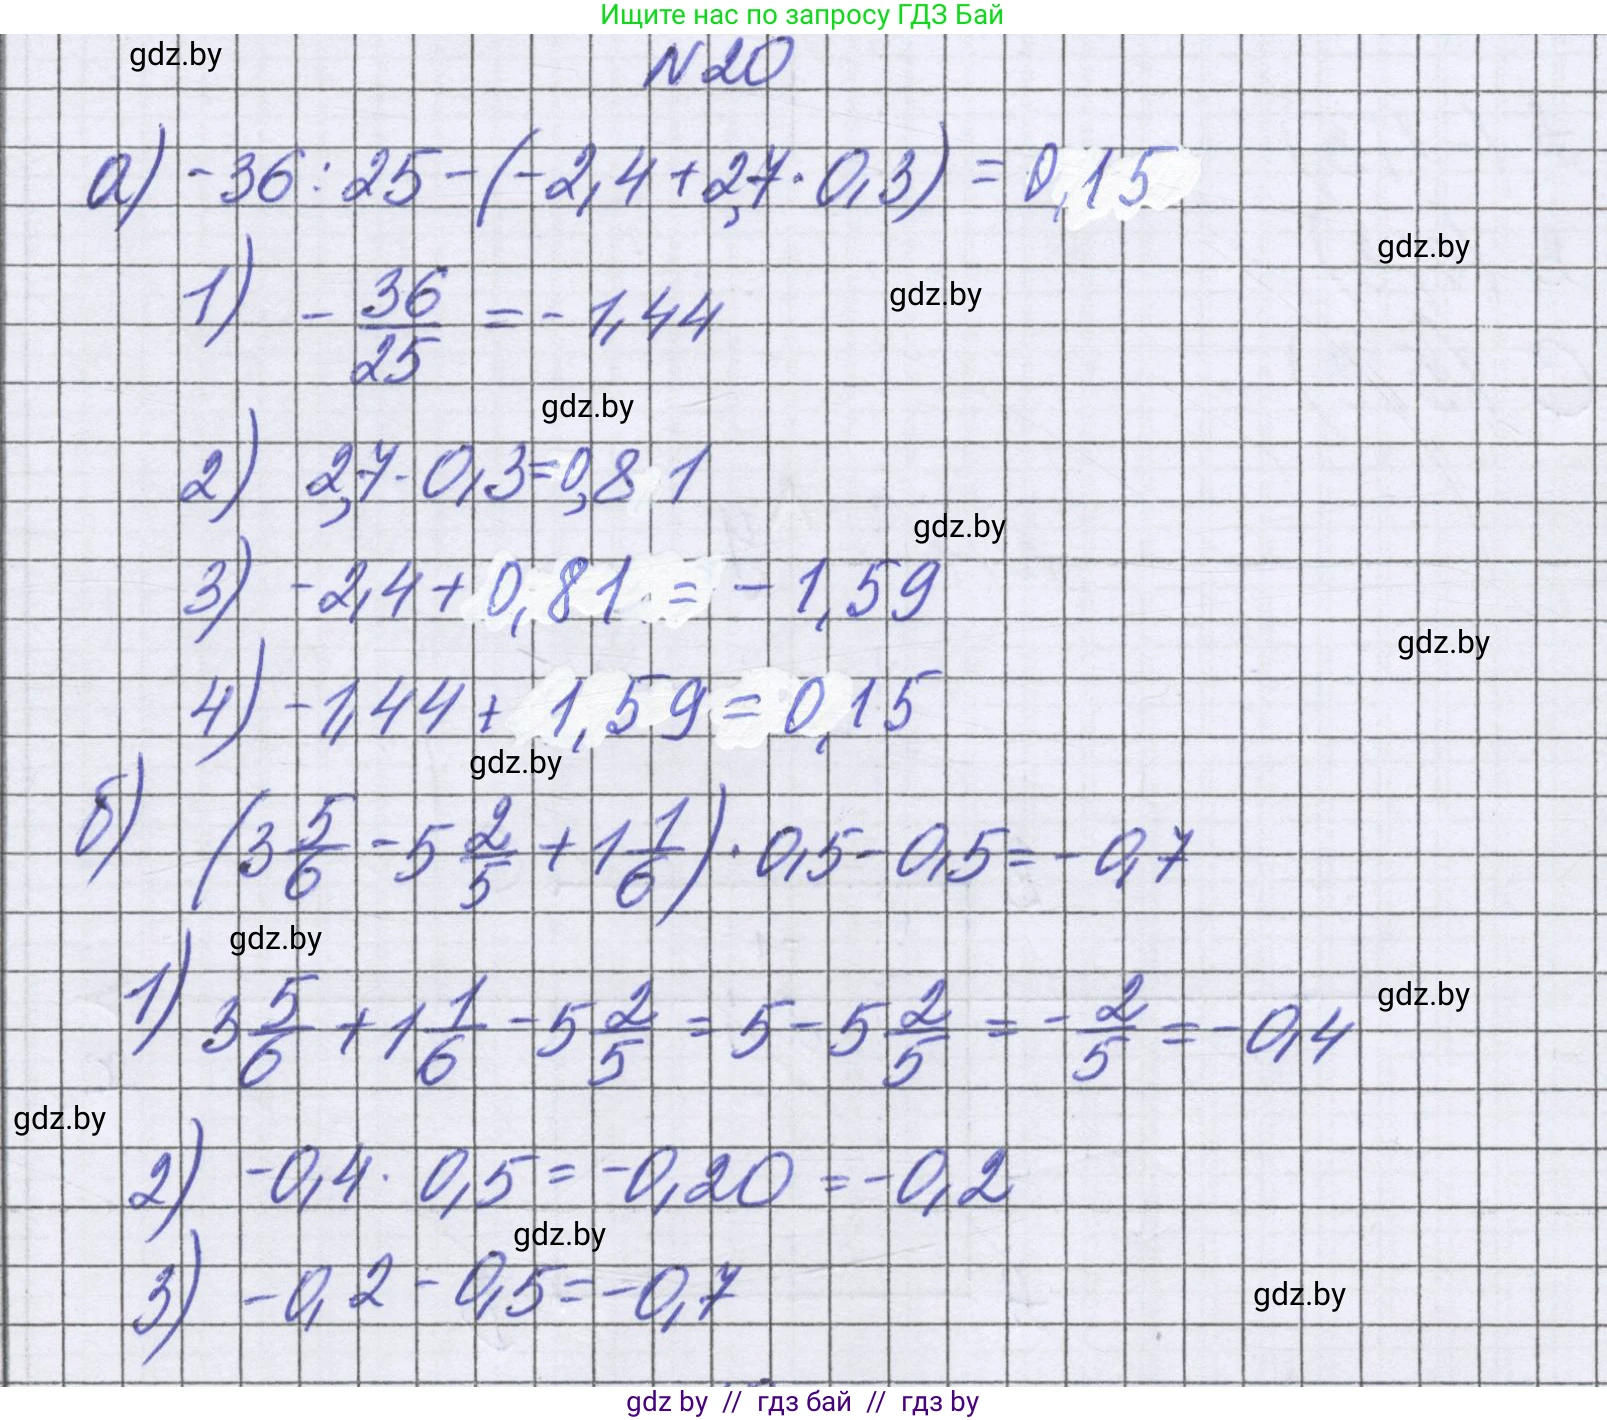 Ищите нас по запросу ГДЗ Бай
gdz.by
N20
а) -36 : 25 - (-2,4 + 2,7 · 0,3) = 0,15
gdz.by
gdz.by
1) - 36/25 = - 1,44
gdz.by
2) 2,7 · 0,3 = 0,81
gdz.by
3) -2,4 + 0,81 = - 1,59
gdz.by
4) -1,44 + 1,59 = 0,15
gdz.by
б) (3 5/6 - 5 2/5 + 1 1/6) · 0,5 - 0,5 = - 0,7
gdz.by
gdz.by
1) 3 5/6 + 1 1/6 - 5 2/5 = 5 - 5 2/5 = - 2/5 = - 0,4
gdz.by
2) -0,4 · 0,5 = -0,20 = -0,2
gdz.by
3) -0,2 - 0,5 = -0,7
gdz.by
gdz by // гдз бай // гдз by